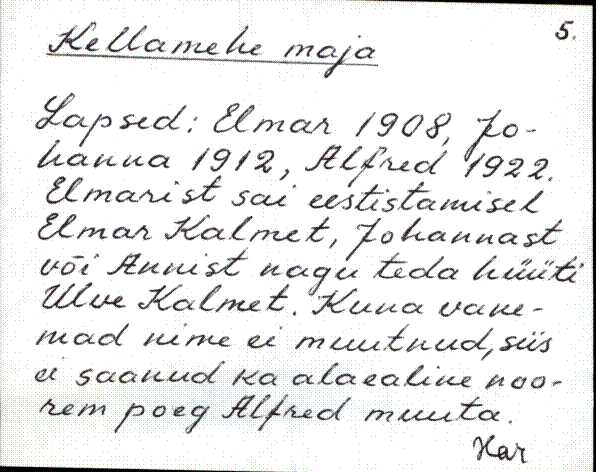 5.
Kellamehe maja
Lapsed: Elmar 1908, Jo-
hanna 1912, Alfred 1922.
Elmarist sai eestistamisel
Elmar Kalmet, Johannast
või Annist nagu teda hüüti
Ulve Kalmet. Kuna vane-
mad nime ei muutnud, siis
ei saanud ka alaealine noo-
rem poeg Alfred muuta.
Har